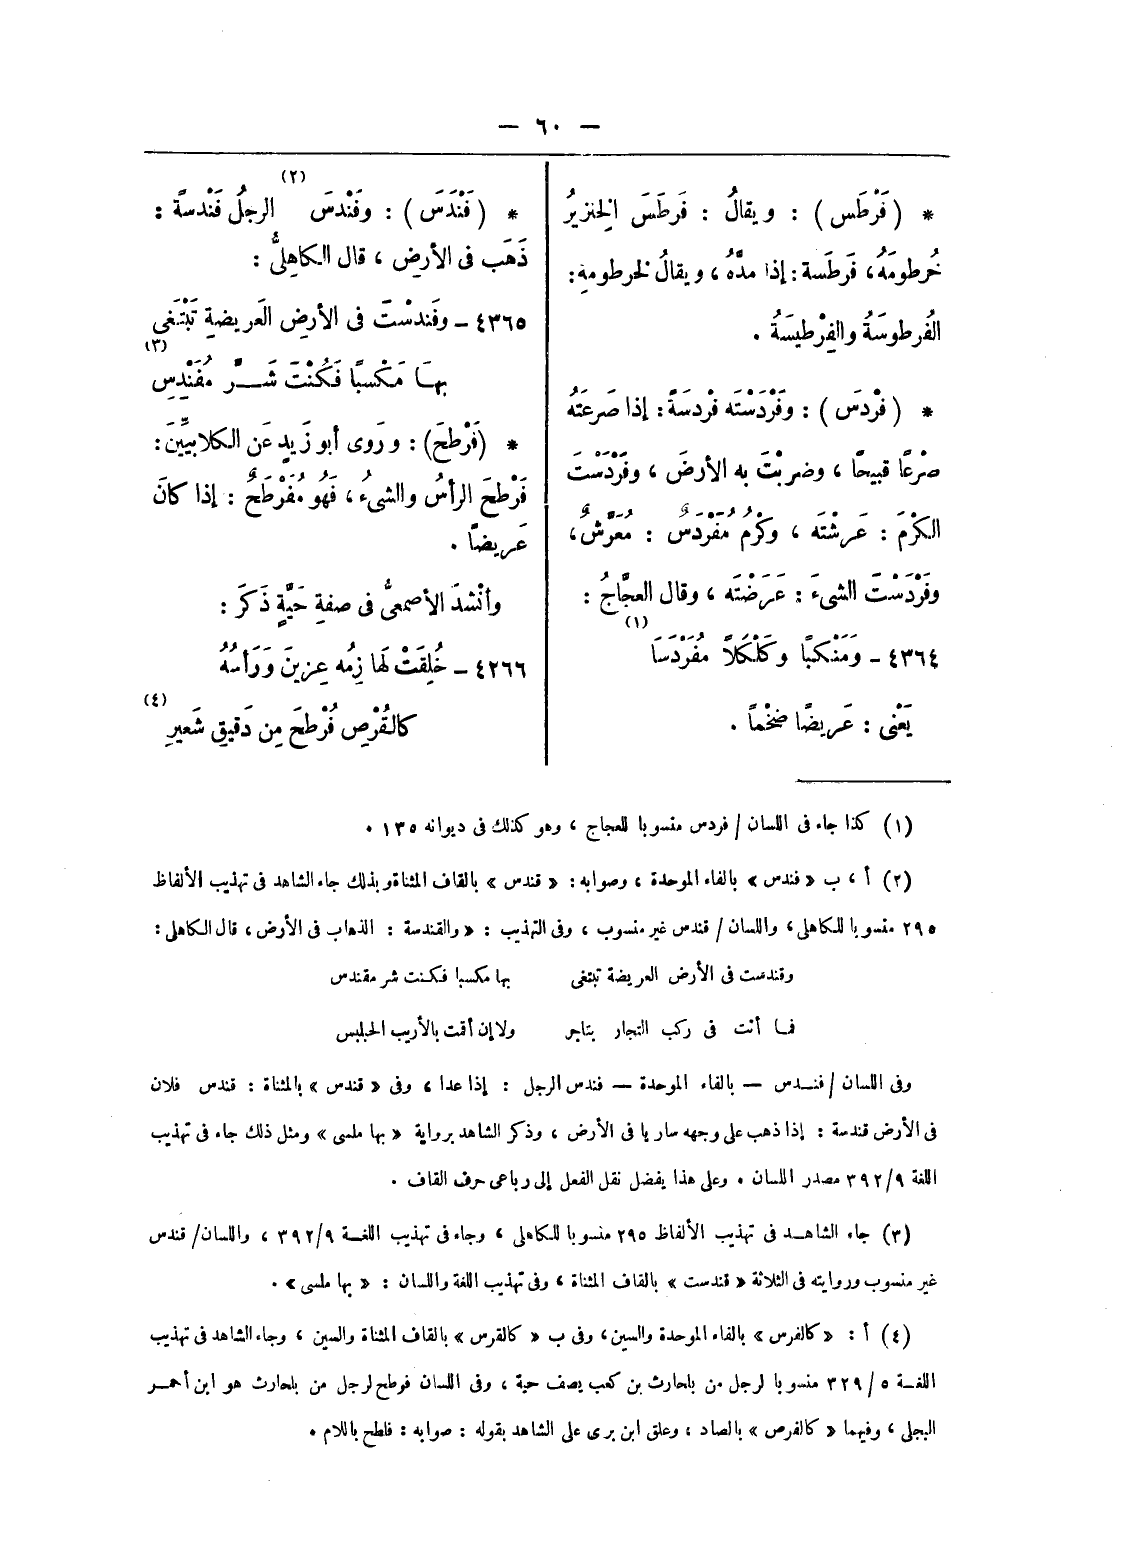 — ٦٠ —
* ( فَرْطَس ) : ويقالُ : فَرطَسَ الخِنزيرُ
خُرطومَهُ، فَرطَسة : إذا مدَّهُ ، ويقالُ لخرطومةِ :
الفُرطوسَةُ والفِرْطيسَةُ .
* ( فرْدَسَ ) : وفَرْدَسْتَه فردسَةً : إذا صَرعَتَهُ
صَرْعًا قبيحًا ، وضربْتَ به الأرضَ ، وفَرْدَسْتَ
الكَرْمَ : عَرشْتَه ، وكَرْمٌ مُفَرْدَسٌ : مُعَرَّشٌ ،
وفَرْدَسْتَ الشيءَ : عَرَضْتَه ، وقال العجَّاجُ :
٤٣٦٤ ـ وَمَنْكبًا وكَلْكَلاً مُفَرْدَسَا (١)
يَعْنى : عَريضًا ضخْماً .
* ( فَنْدَسَ ) : وفَنْدسَ (٢) الرجلُ فَنْدسةً :
ذَهَب فى الأرضِ ، قال الكاهِلىُّ :
٤٣٦٥ ـ وفَندسْتَ فى الأرضِ العَريضةِ تَبْتَغى
بهـَا مَكْسبًا فَكُنْتَ شَـــرَّ مُفَنْدِسِ (٣)
* (فَرْطَحَ) : ورَوى أبو زَيدٍ عَن الكلابيِّينَ :
فَرْطحَ الرأسُ والشيءُ ، فَهُو مُفَرْطَحٌ : إذا كانَ
عَريضاً .
وأنْشدَ الأصمعىُّ فى صفةِ حَيَّةٍ ذَكَرَ :
٤٢٦٦ ـ خُلِقَتْ لَها زِمُه عِزينَ وَرَأسُهُ
كالقُرْصِ فُرْطحَ مِن دَقيقِ شَعيرِ (٤)
(١) كذا جاء فى اللسان / فردس منسوبا للعجاج ، وهو كذلك فى ديوانه ١٣٥ .
(٢) أ ، ب « فندس » بالفاء الموحدة ، وصوابه : « قندس » بالقاف المثناة وبذلك جاء الشاهد فى تهذيب الألفاظ
٢٩٥ منسوبا للكاهلى ، واللسان / قندس غير منسوب ، وفى التهذيب : « والقندسة : الذهاب فى الأرض ، قال الكاهلى :
وقندست فى الأرض العريضة تبتغى بها مكسبا فكنت شر مقندس
فمـا أنت فى ركب التجار بتاجر ولا إن أقمت بالأريب الحلبس
وفى اللسان / فنـــدس — بالفاء الموحدة — فندس الرجل : إذا عدا ، وفى « قندس » بالمثناة : قندس فلان
فى الأرض قندسة : إذا ذهب على وجهه ساريا فى الأرض ، وذكر الشاهد برواية « بها ملسى » ومثل ذلك جاء فى تهذيب
اللغة ٣٩٢/٩ مصدر اللسان . وعلى هذا يفضل نقل الفعل إلى رباعى حرف القاف .
(٣) جاء الشاهـد فى تهذيب الألفاظ ٢٩٥ منسوبا للكاهلى ، وجاء فى تهذيب اللغــة ٣٩٢/٩ ، واللسان/ قندس
غير منسوب وروايته فى الثلاثة « قندست » بالقاف المثناة ، وفى تهذيب اللغة واللسان : « بها ملسى » .
(٤) أ : « كالفرس » بالفاء الموحدة والسين ، وفى ب « كالقرس » بالقاف المثناة والسين ، وجاء الشاهد فى تهذيب
اللغــة ٣٢٩/٥ منسوبا لرجل من بلحارث بن كعب يصف حية ، وفى اللسان فرطح لرجل من بلحارث هو ابن أحمـر
البجلى ، وفيهما « كالقرص » بالصاد ، وعلق ابن برى على الشاهد بقوله : صوابه : فلطح باللام .